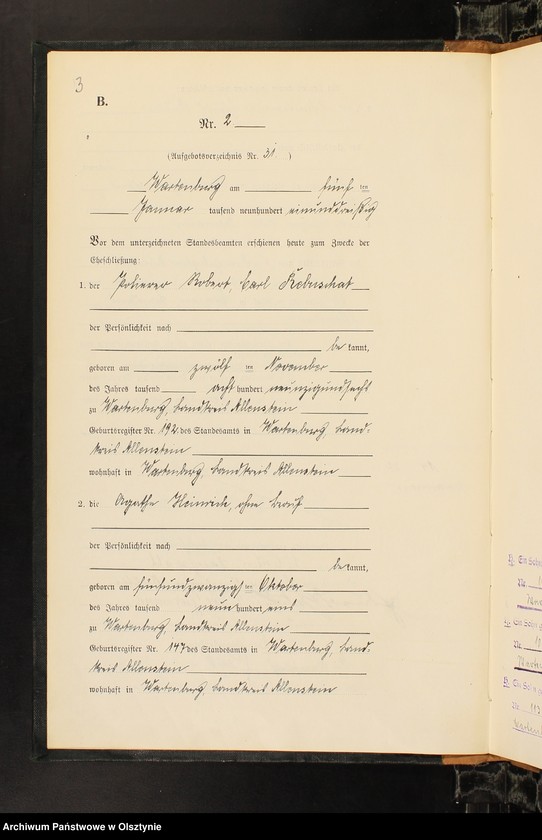 3
B.
Nr. 2
(Aufgebotsverzeichnis Nr. 31.)
Wartenburg am fünf ten
Januar tausend neunhundert einunddreißig
Vor dem unterzeichneten Standesbeamten erschienen heute zum Zwecke der
Eheschließung:
1. der Polierer Robert, Carl
der Persönlichkeit nach
be kannt,
geboren am zwölf ten November
des Jahres tausend acht hundert neunzigundsechs
zu Wartenburg, Landkreis Allenstein
Geburtsregister Nr. 192 des Standesamts in Wartenburg, Land-
kreis Allenstein
wohnhaft in Wartenburg, Landkreis Allenstein
2. die Agathe Heinrich, ohne Beruf
der Persönlichkeit nach
be kannt,
geboren am fünfundzwanzigs ten Oktober
des Jahres tausend neun hundert eins
zu Wartenburg, Landkreis Allenstein
Geburtsregister Nr. 147 des Standesamts in Wartenburg, Land-
kreis Allenstein
wohnhaft in Wartenburg, Landkreis Allenstein
Ein
Nr.
Ein
Nr.
Ein
Nr.
Archiwum Państwowe w Olsztynie